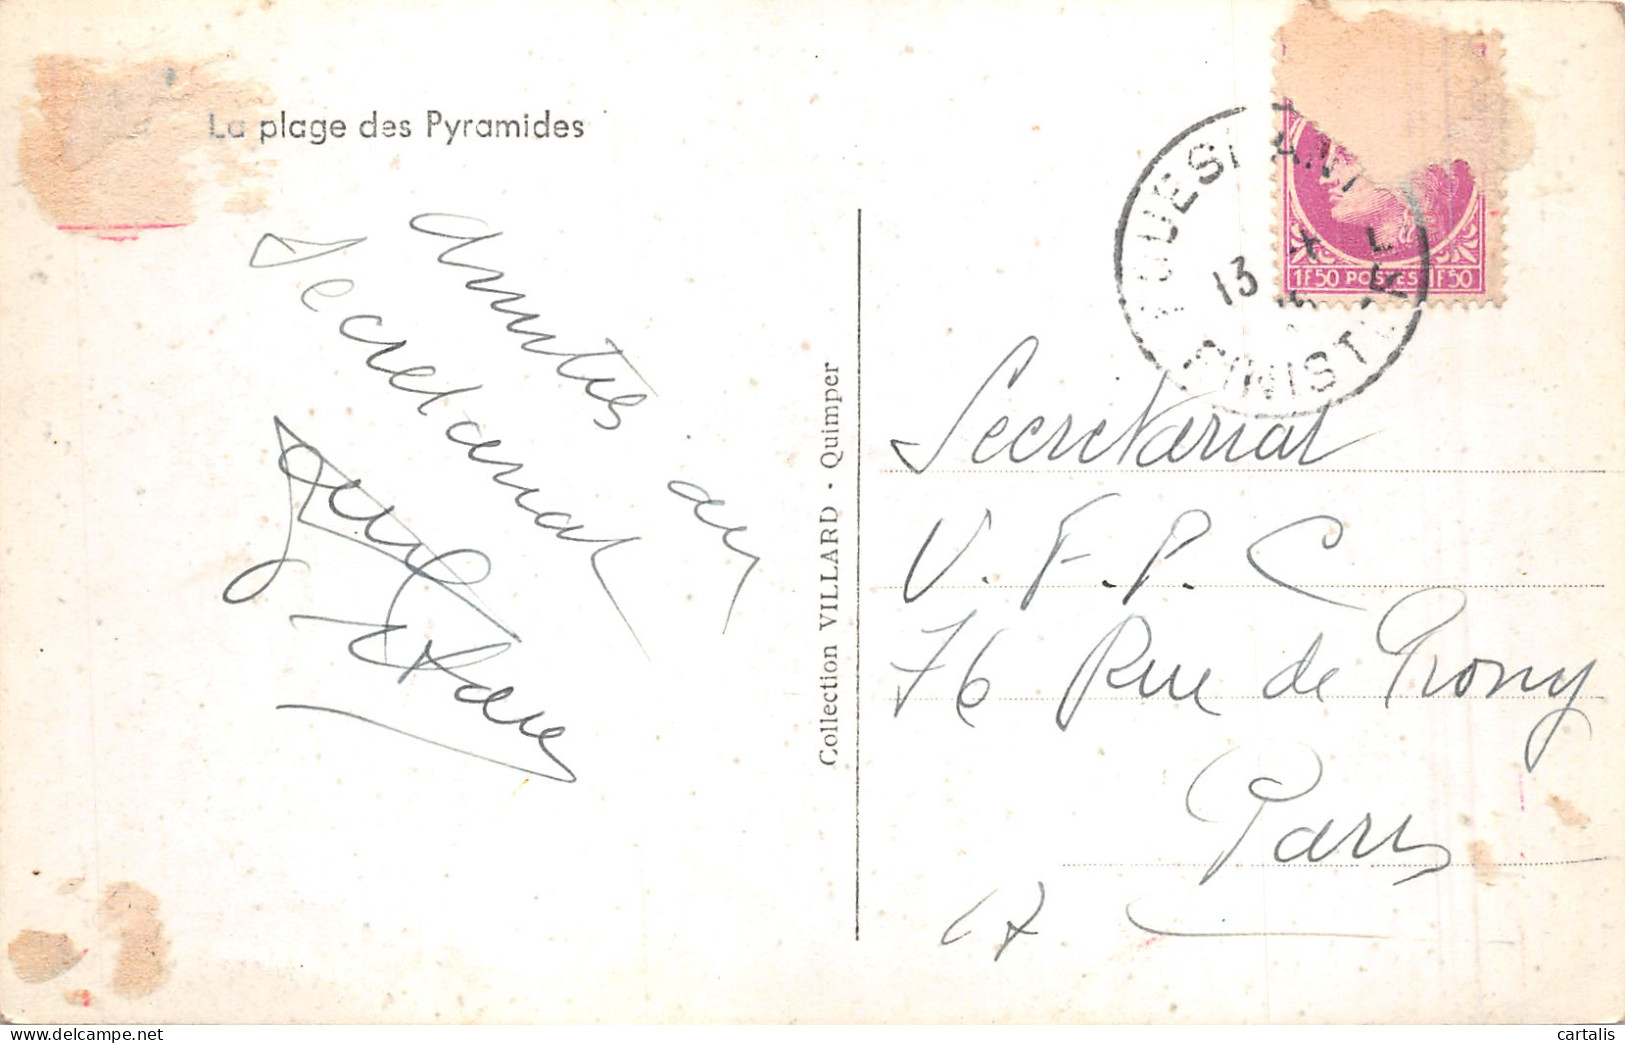 La plage des Pyramides
Amitiés au
Secrétariat
Collection VILLARD - Quimper
13
FINISTERE
1F50 POSTES 1F50
Secretariat
U. F. P. C
76 Rue de Prony
Paris
17
cartalis
delcampe.net